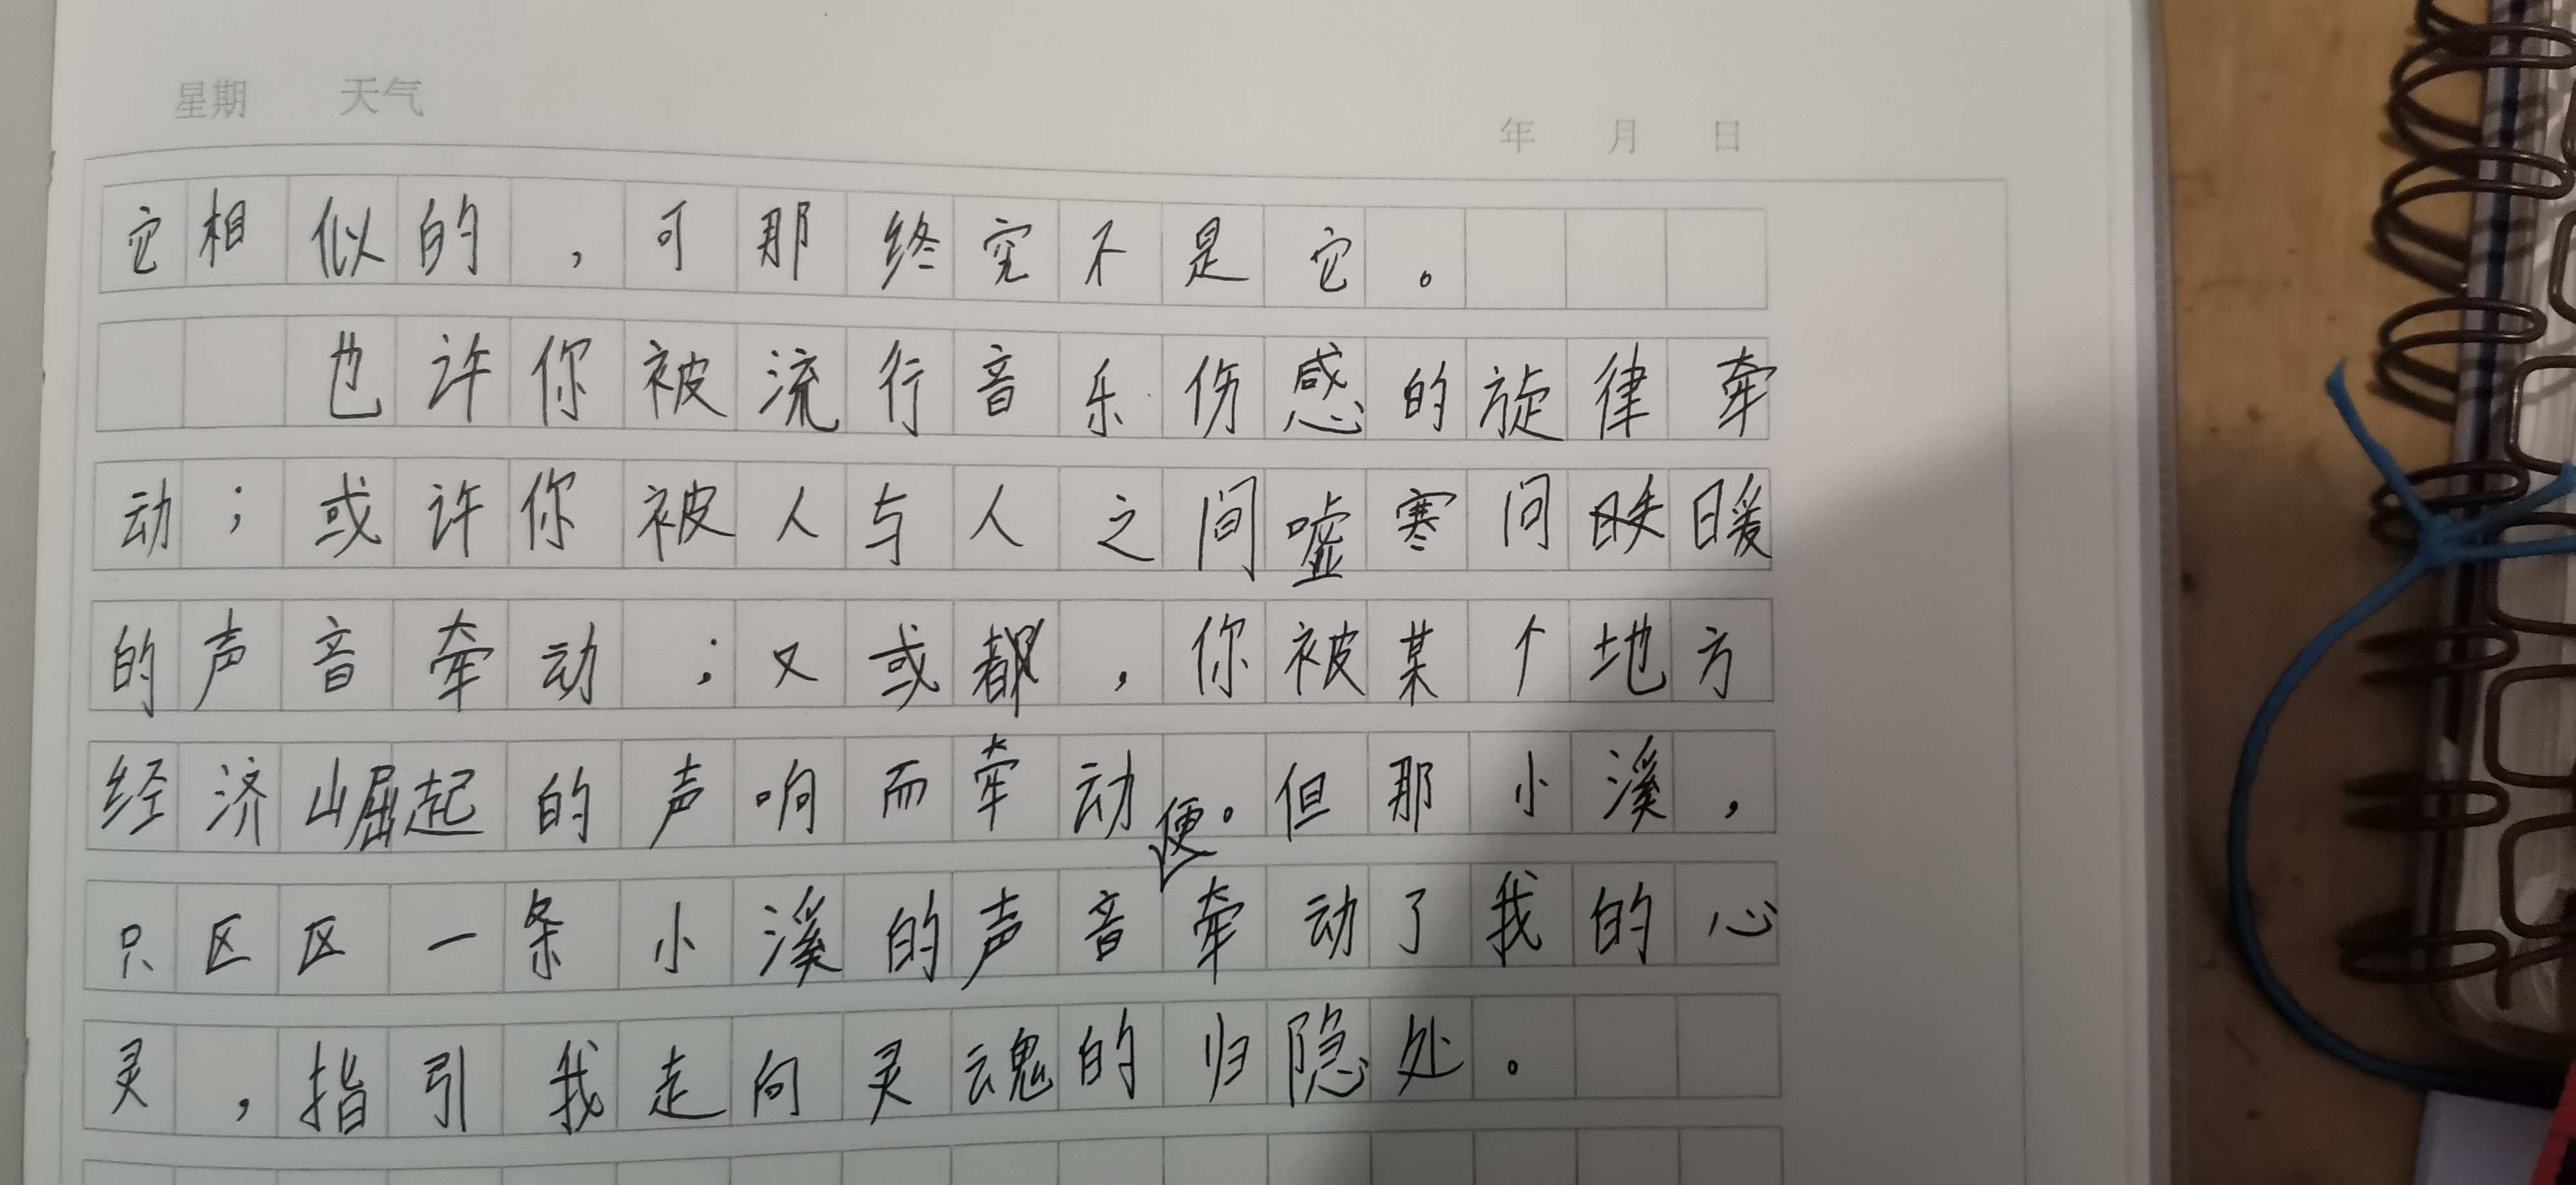 星期 天气
年 月 日
它相似的，可那终究不是它。
也许你被流行音乐伤感的旋律牵
动；或许你被人与人之间嘘寒问暖
的声音牵动；又或，你被某个地方
经济崛起的声响而牵动。但那小溪，
只区区一条小溪的声音便牵动了我的心
灵，指引我走向灵魂的归隐处。